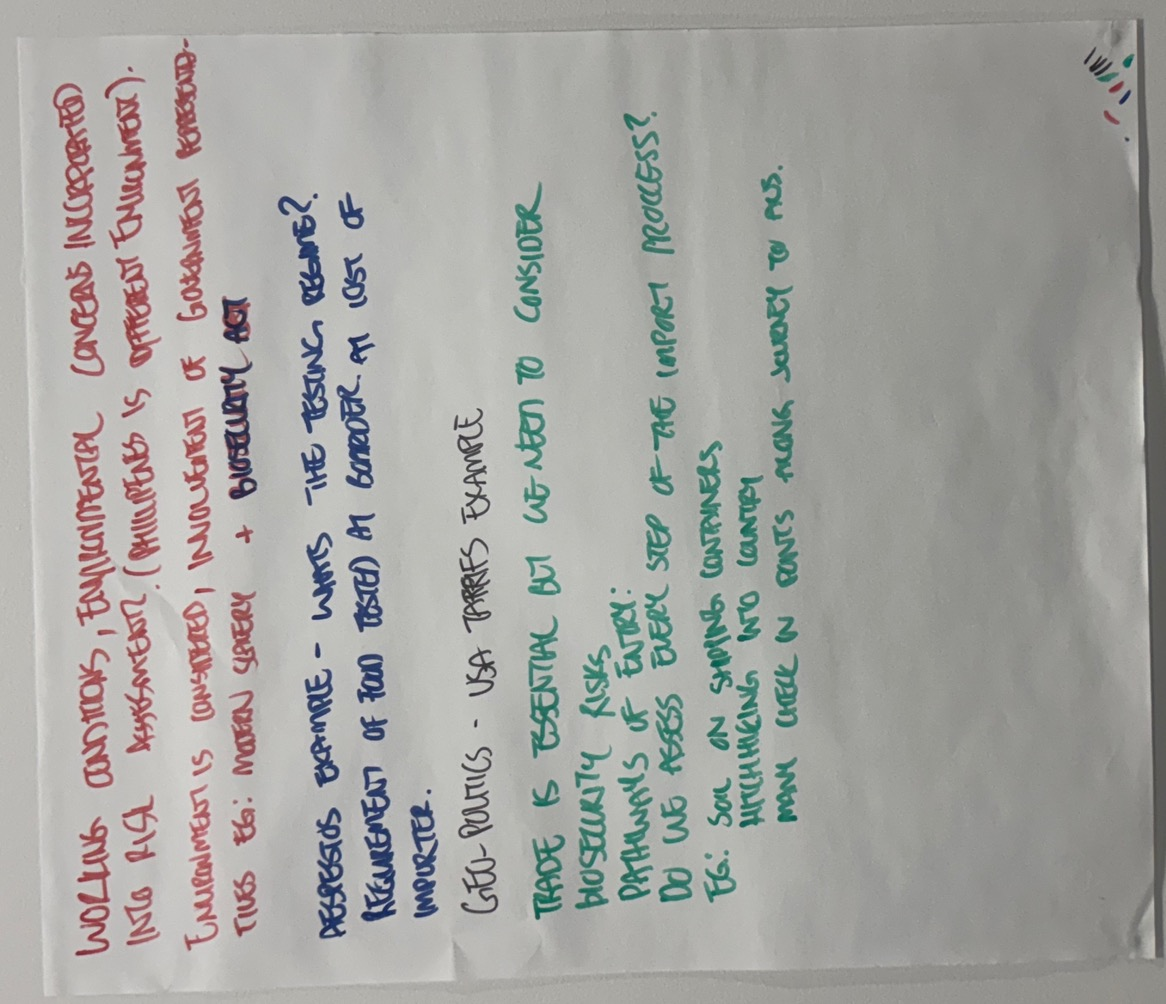 WORKING CONDITIONS, ENVIRONMENTAL CONCERNS INCORPORATED
INTO RISK ASSESSMENT? (PHILLIPENES IS DIFFERENT ENVIRONMENT).
ENVIRONMENT IS CONSIDERED, INVOLVEMENT OF GOVERNMENT REPRESENTA-
TIVES EG: MODERN SLAVERY + BIOSECURITY ACT
ASBESTOS EXAMPLE - WHATS THE TESTING REGIME?
REQUIREMENT OF FOOD TESTED AT BOARDER. AT COST OF
IMPORTER.
GEO-POLITICS - USA TARRIFS EXAMPLE
TRADE IS ESSENTIAL BUT WE NEED TO CONSIDER
BIOSECURITY RISKS
PATHWAYS OF ENTRY:
DO WE ASSESS EVERY STEP OF THE IMPORT PROCCESS?
EG: SOIL ON SHIPPING CONTAINERS
HITCHHIKING INTO COUNTRY
MANY CHECK IN POINTS ALONG JOURNEY TO AUS.